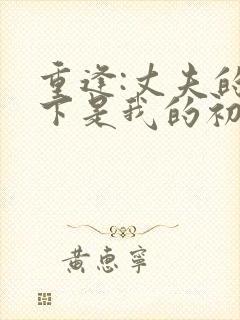 重逢:丈夫的
下是我的初
黄惠寧